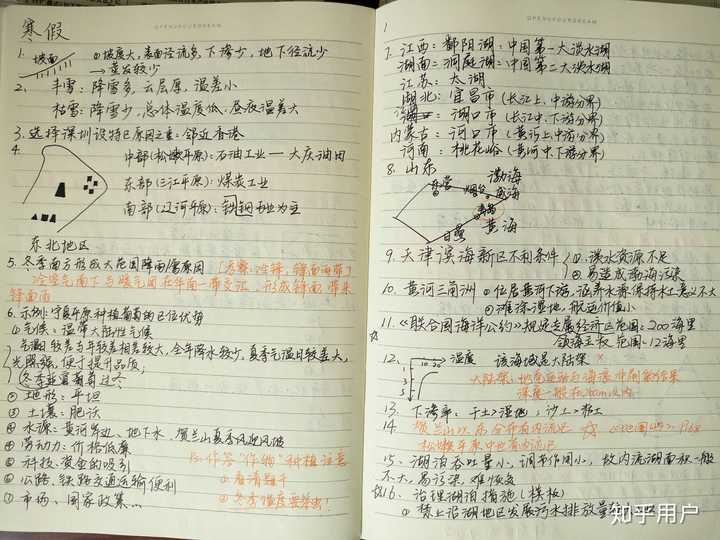 寒假
1. 坡面 ①坡度大,表面径流多,下渗少,地下径流少
→蒸发较少
2. 丰雪:降雪多,云层厚,温差小
枯雪:降雪少,总体温度低,昼夜温差大
3. 选择深圳设特区原因之一:邻近香港
4. 中部(松嫩平原):石油工业——大庆油田
东部(三江平原):煤炭工业
南部(辽河平原):钢铁专业为主
东北地区
5. 冬季南方形成大范围降雨/雪原因
冷空气南下与暖空气在 一带交汇,形成锋面,带来
锋面雨
6. 示例:宁夏平原种植葡萄的区位优势
①气候:温带大陆性气候
气温日较差与年较差相差较大,全年降水较少,夏季气温日较差大,
光照强,便于提升品质,
冬季 葡萄过冬
②地形:平坦
③土壤:肥沃
④水源:黄河岸边、地下水,贺兰山夏季风迎风坡
⑤劳动力:价格低廉
⑥科技、资金的吸引
⑥公路、铁路交通运输便利
⑦市场、国家政策…
作答"作物"种植注意
①看清题干
②冬季温度要答出!
7. 江西:鄱阳湖:中国第一大淡水湖
湖南:洞庭湖:中国第二大淡水湖
江苏:太湖
湖北:宜昌市(长江上、中游分界)
湖口市(长江中、下游分界)
内蒙古:河口市(黄河上中游分界)
河南:桃花峪(黄河中下游分界)
8. 山东 渤海
东营 烟台 威海
青岛
日照 黄海
9. 天津滨海新区不利条件 ①淡水资源不足
②易造成渤海污染
10. 黄河三角洲 ①位居黄河下游,涵养水源保持水土意义不大
②滩涂湿地,航运价值小
11. 《联合国海洋公约》规定专属经济区范围:200海里
领海主权范围:12海里
12. 温度 该海域是大陆架 ×
大陆架:地壳运动与海浪冲刷的结果
深度一般在200m以内
13. 下渗率:干土>湿地,沙土>粘土
14 贺兰山以东全部有内流区
松嫩平原中也有内流区
15、湖泊吞吐量小,调节作用小,故内流湖面积一般
不大,易污染,难恢复
16. 治理湖泊措施(模板)
①禁止沿湖地区发展污水排放量
知乎用户